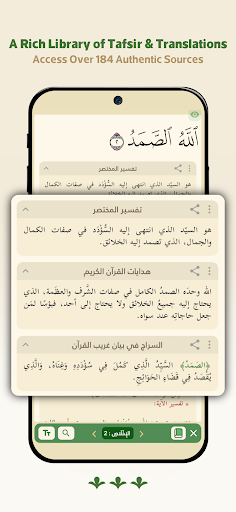 A Rich Library of Tafsir & Translations
Access Over 184 Authentic Sources
ٱللَّهُ ٱلصَّمَدُ ٢
تفسير المختصر
هو السيّد الذي انتهى إليه السُّؤْدَد في صفات الكمال
تفسير المختصر
هو السيّد الذي انتهى إليه السُّؤْدَد في صفات الكمال
والجمال، الذي تصمد إليه الخلائق.
هدايات القرآن الكريم
الله وحدَه الصمدُ الكامل في صفات الشَّرف والعظَمة، الذي
يحتاج إليه جميعُ الخلائق ولا يحتاج إلى أحد، فبؤسًا لمَن
جعل حاجاتِه عند سواه.
السراج في بيان غريب القرآن
﴿الصَّمَدُ﴾ السَّيِّدُ الَّذِي كَمُلَ فِي سُؤْدَدِهِ وَغِنَاهُ، وَالَّذِي
يُقْصَدُ فِي قَضَاءِ الْحَوَائِجِ.
تفسير الآية:
Tт
الإخلاص: 2